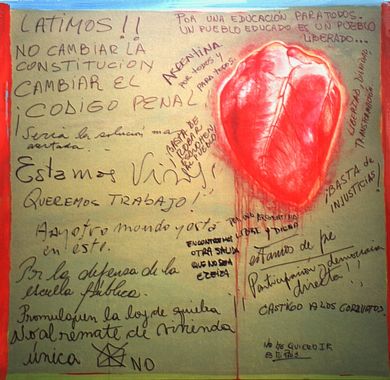 LATIMOS!!
NO CAMBIAR LA
CONSTITUCION
CAMBIAR EL
¡CODIGO PENAL!
Sería la solución más
acertada...
Estamos Vivos!
QUEREMOS TRABAJO!
Hay otro mundo y está
en este.
Por la defensa de la
escuela Pública.
Promulguen la ley de quiebra
No al remate de vivienda
única NO
POR UNA EDUCACION PARA TODOS.
UN PUEBLO EDUCADO ES UN PUEBLO
LIBERADO...
ARGENTINA
POR TODOS Y
PARA TODOS.
BASTA DE
ROBAR
AL PUEBLO
LIBERTAD, DIGNIDAD,
TRANSFORMACIÓN
¡BASTA de
INJUSTICIAS!
POR UNA ARGENTINA
LIBRE Y DIGNA
ENCONTREMOS
OTRA SALIDA
QUE NO SEA
EZEIZA
estamos de pie
Participación y democracia
directa!!
CASTIGO A LOS CORRUPTOS.
NO ME QUIERO IR